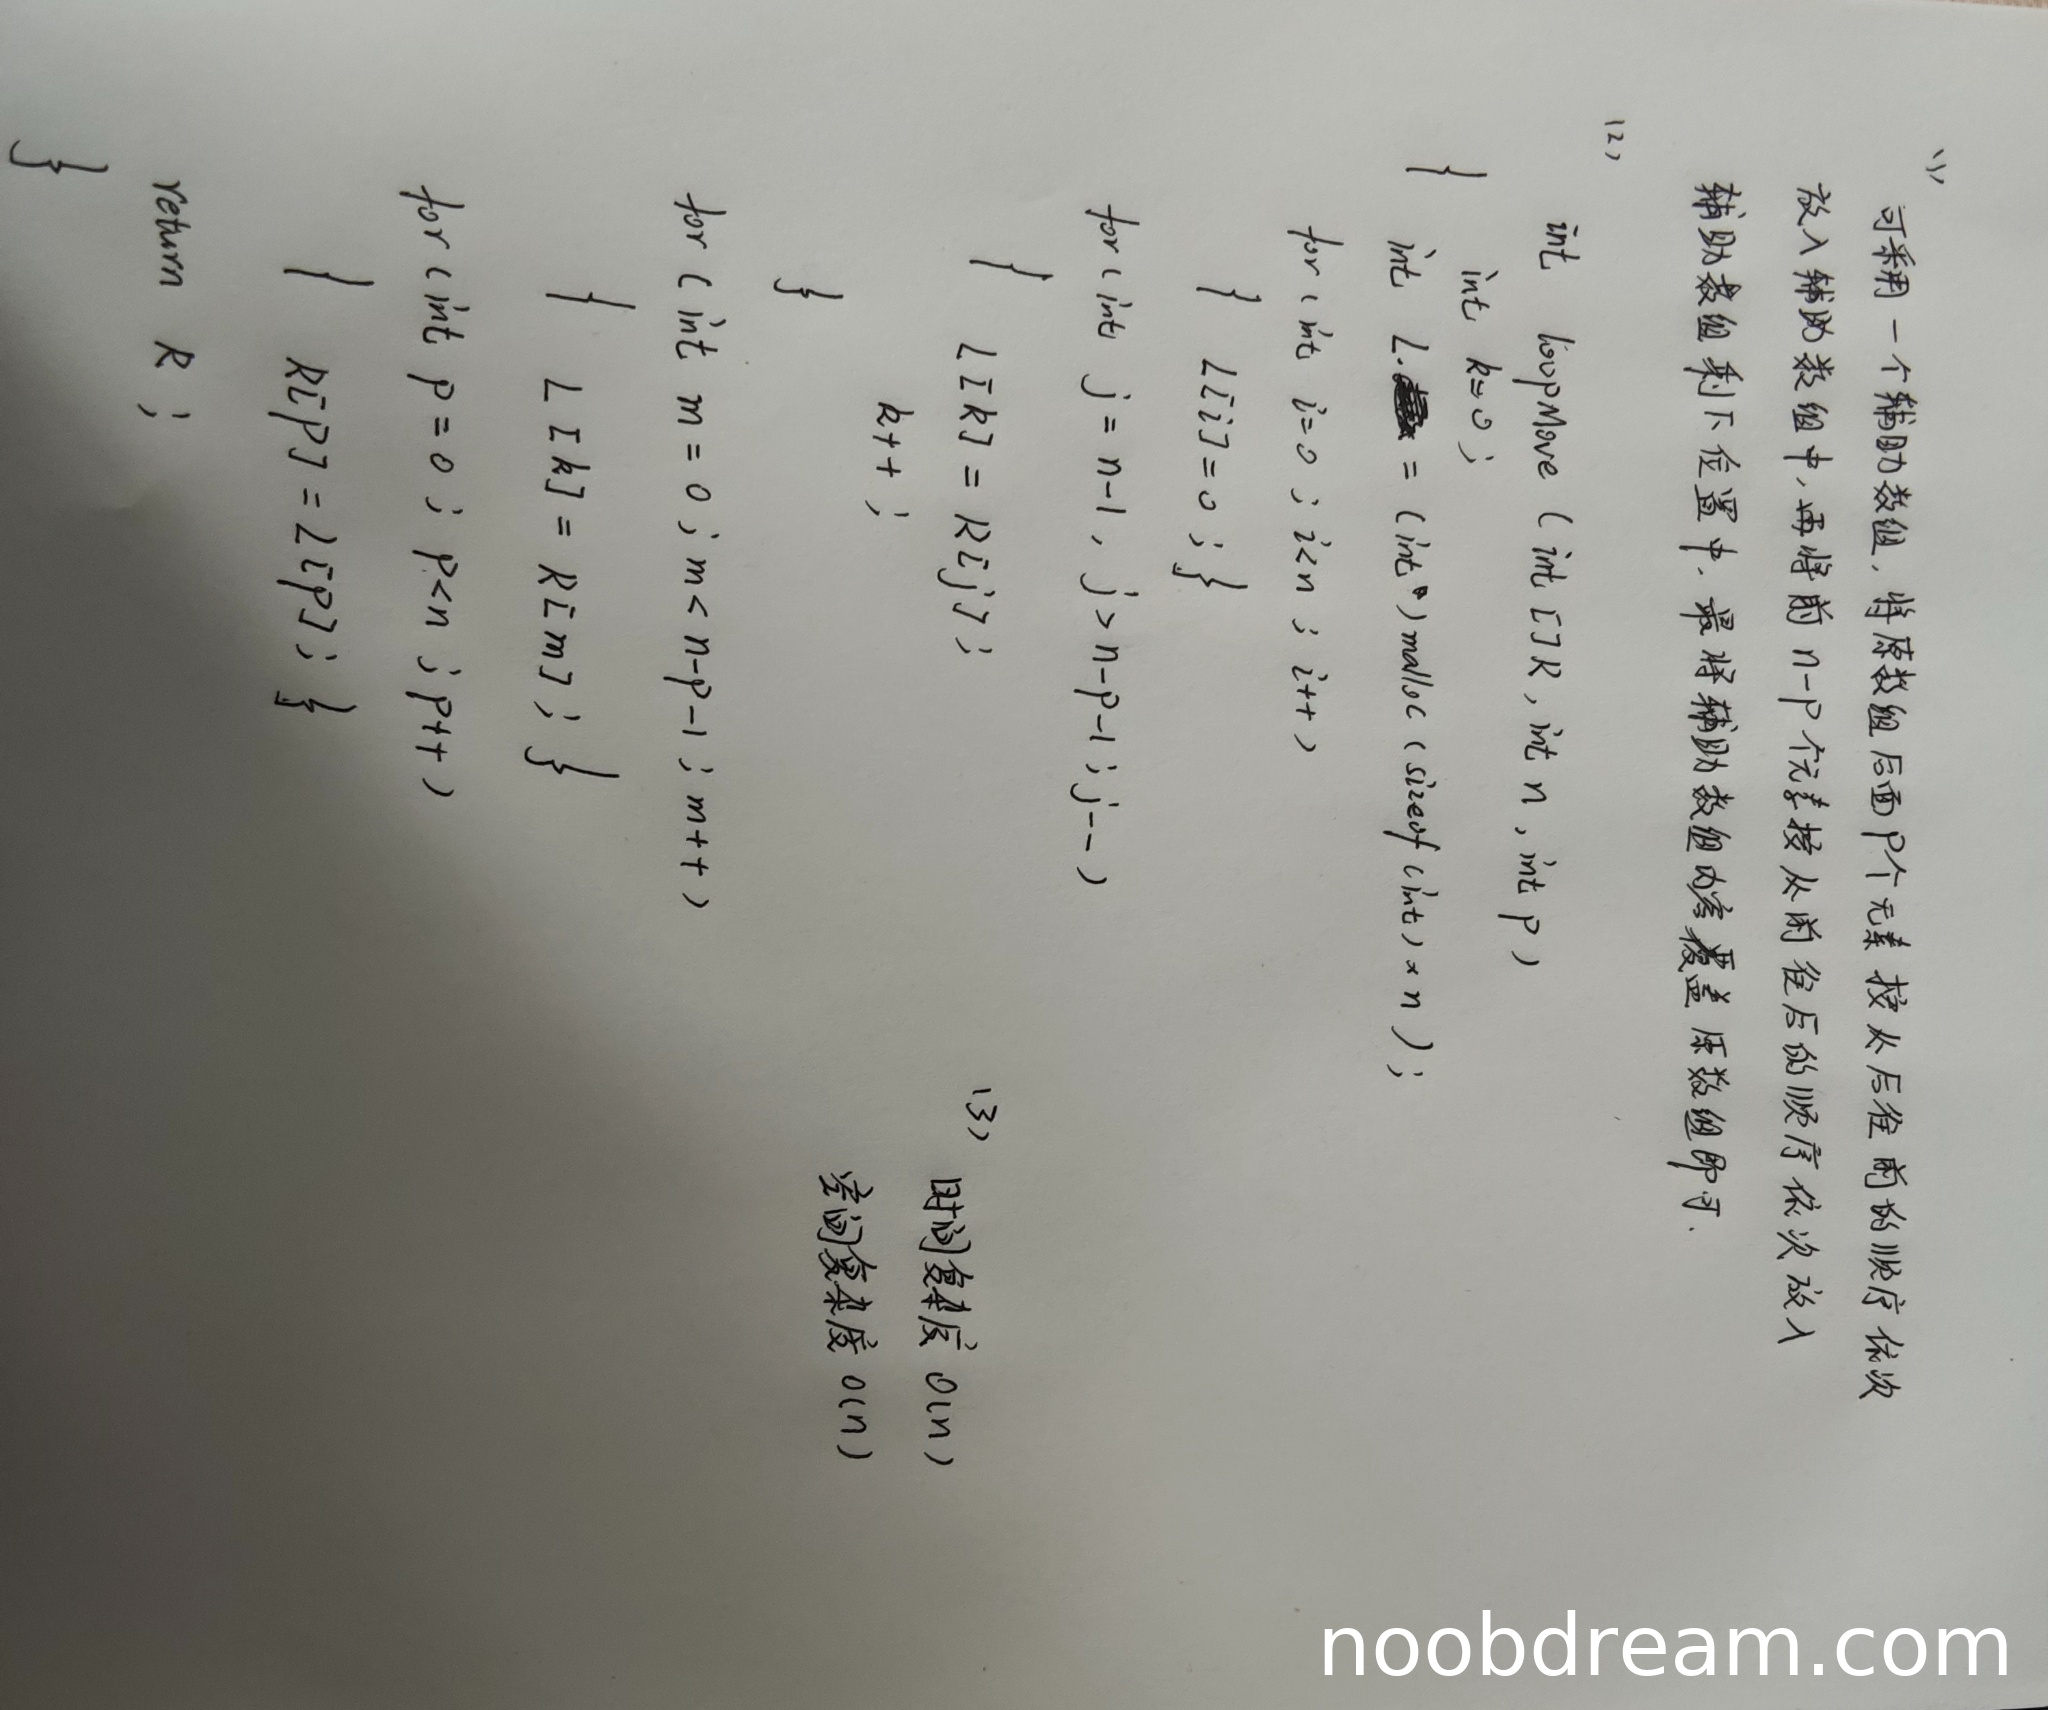 (1)
可采用一个辅助数组，将原数组后面p个元素按从后往前的顺序依次
放入辅助数组中，再将前n-p个元素按从前往后的顺序依次放入
辅助数组剩下位置中，最将辅助数组内容覆盖原数组即可.
(2)
int loopMove (int []R, int n, int p)
int k=0;
{ int L = (int*)malloc (sizeof(int)×n);
for(int i=0; i<n; i++)
{ L[i]=0; }
for(int j=n-1, j>n-p-1; j--)
{ L[k] = R[j];
k++;
}
for(int m=0; m<n-p-1; m++)
{ L[k] = R[m]; }
for(int p=0; p<n; p++)
{ R[p] = L[p]; }
return R;
}
(3)
时间复杂度 O(n)
空间复杂度 O(n)
noobdream.com